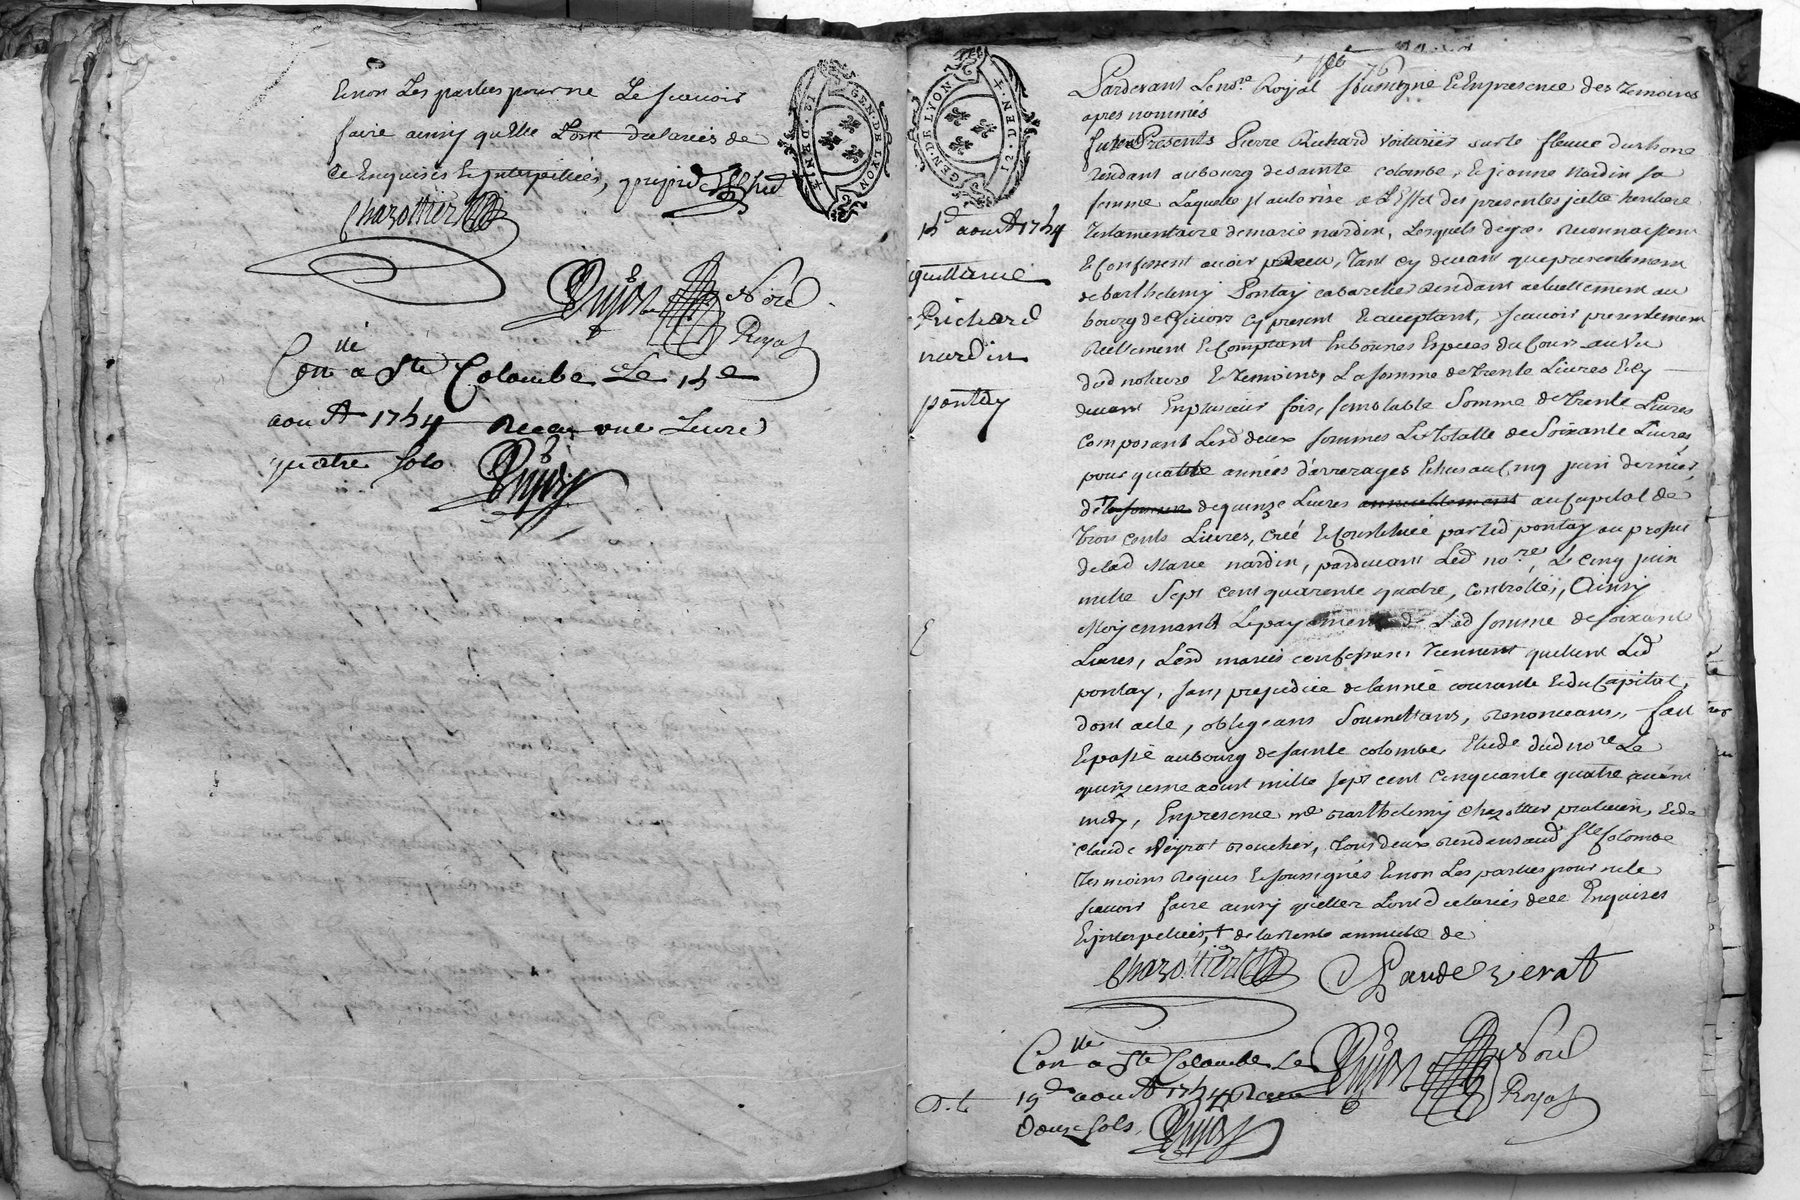 Et non Les parties pour ne Le scavoir
faire ainsy qu'elle Lont declarées de
ce Enquises & Interpellées,
Chazottier
GEN. DE LYON
12. DEN. 1
Dujast Nore
Royal
Conlle a Ste Colombe Le 15e
aoust 1754 Receu une Livre
quatre sols
Dujast
GEN. DE LYON
12. DEN. 1
15e aoust 1754
quittance
Richard
nardin
pontay
Pardevant Le nore. Royal soussigné & En presence des temoins
apres nommés
furent Presents Pierre Richard voiturier sur le fleuve du rhone
residant au bourg de sainte colombe, & jeanne Nardin sa
femme Laquelle jl autorise a L'Effet des presentes jcelle heritiere
Testamentaire de marie nardin, Lesquels de gré reconnoissent
& Confessent avoir receu, tant cy devant que presentement
de barthelemy Pontay cabaretier residant actuellement au
bourg de Givors cy present & acceptant, scavoir presentement
reellement & Comptant En bonnes Especes du Cours au vu
dud notaire & temoins, La somme de trente Livres & cy
devant En plusieurs fois, semblable somme de trente Livres
composant Lesd deux sommes La totalle de Soixante Livres,
pour quatre années d'arrerages Echus au Cinq juin dernier,
de + la somme de quinze Livres annuellement au Capital de
trois cents Livres, créé & Constitué par led pontay au profit
de lad Marie nardin, pardevant Led nore, Le cinq juin
mille sept cent quarente quatre, controllé, Ainsy
Moyennant Le payement de Lad somme de soixante
Livres, Lesd mariés confessent tiennent quittent Led
pontay, sans prejudice de l'année courante & du Capital,
dont acte, obligeans Soumettans, renonceans, fait
& passé au bourg de sainte colombe, Etude dud nore Le
quinzieme aoust mille sept cent cinquante quatre avant
midy, En presence me Barthelemy Chazottier praticien, & de
claude Veyrat boucher, tous deux residans aud Ste Colombe
temoins requis & soussignés & non Les parties pour ne le
scavoir faire ainsy qu'elles Lont declarées de ce Enquises
& jnterpellées, + de la rente annuelle de
Chazottier Claude verat
Conlle a Ste Colombe Le
19e aoust 1754 Receu
Douze sols
Dujast
Dujast Nore
Royal